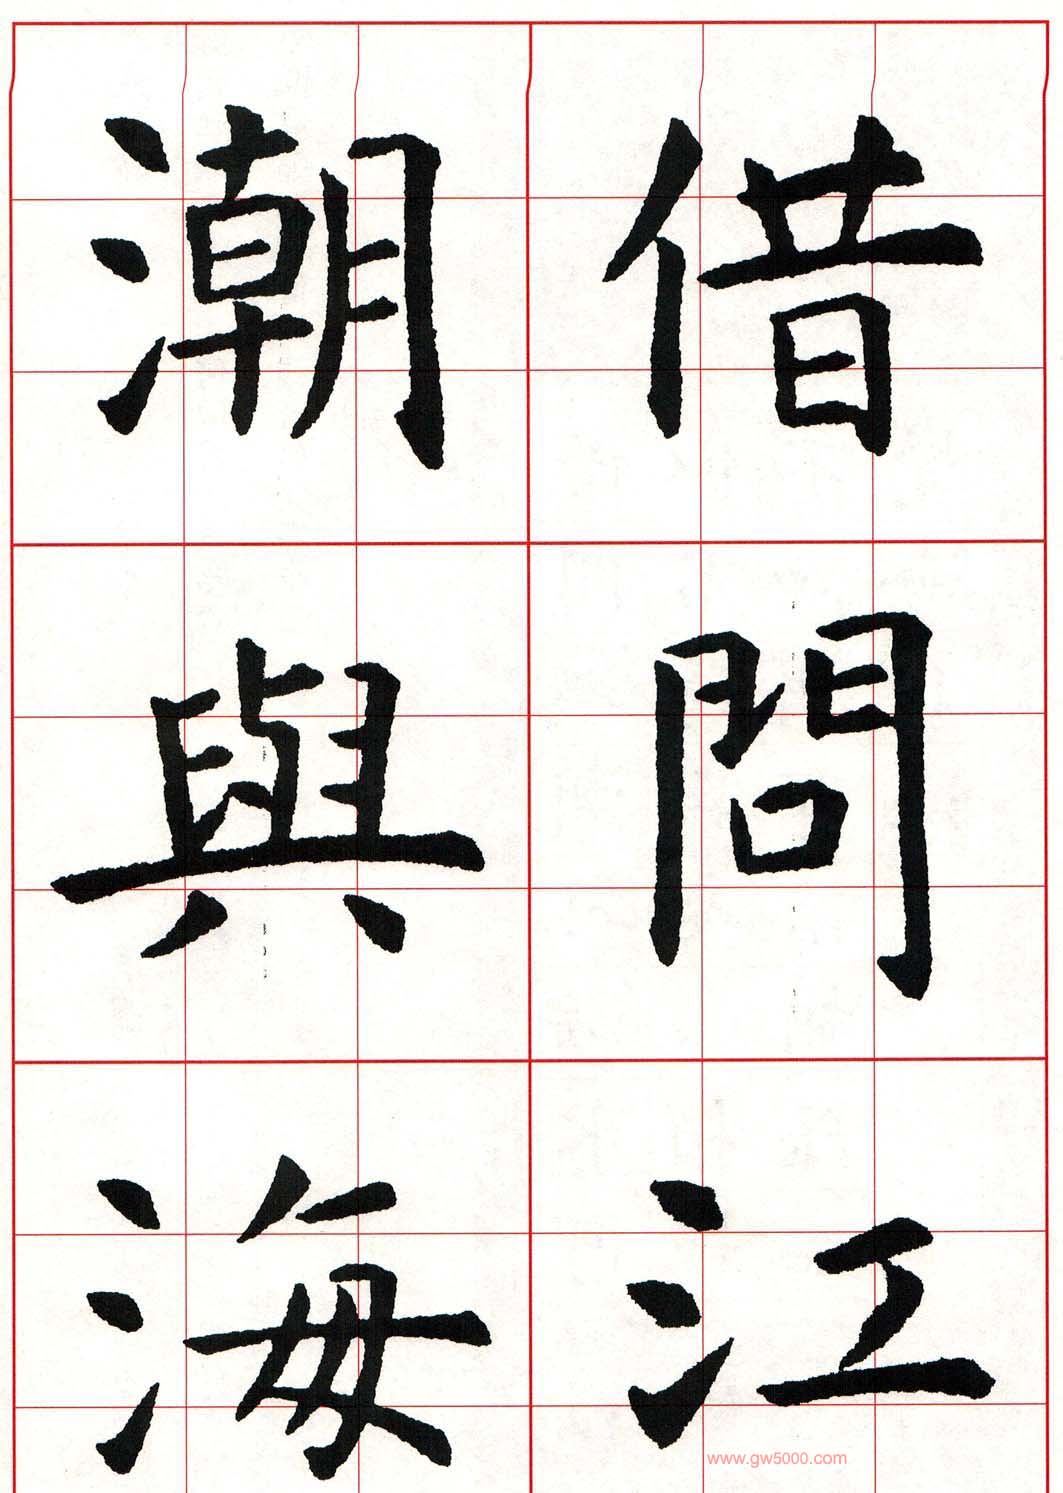 借問江
潮與海
www.gw5000.com